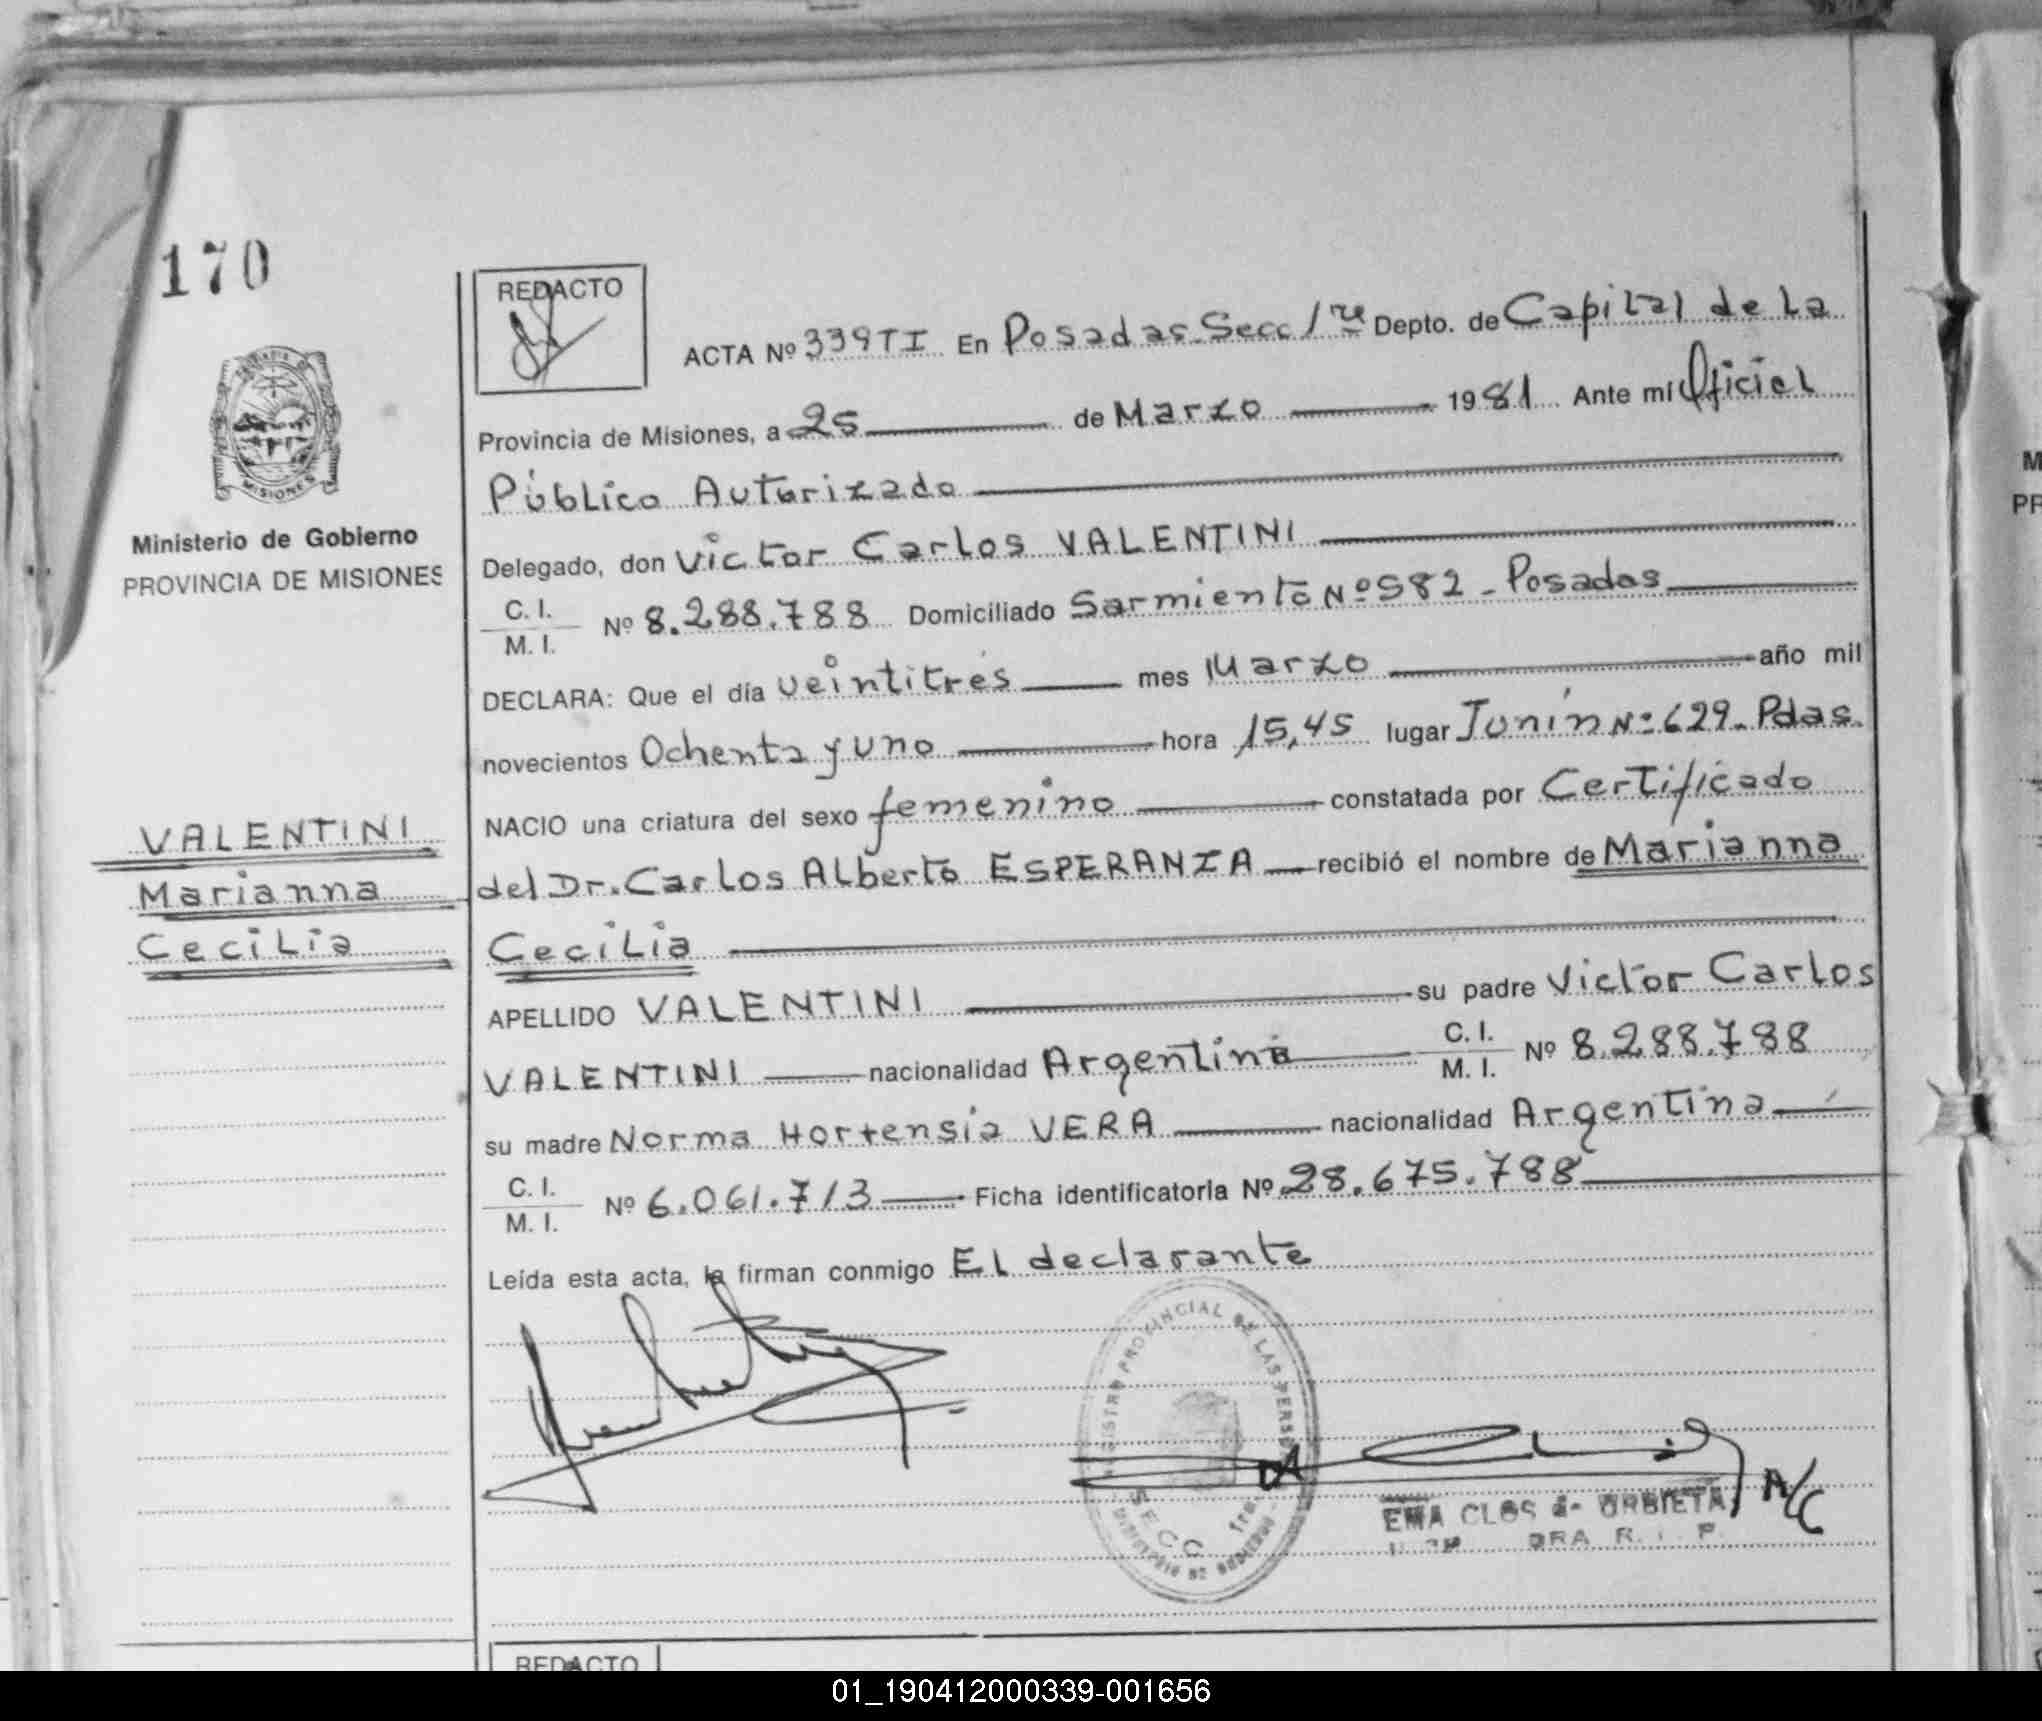 170
REDACTO
ACTA Nº 339TI En Posadas Secc 1ra Depto. de Capital de La
Provincia de Misiones, a 25 de Marzo 1981 Ante mí Oficial
Público Autorizado
MISIONES
Ministerio de Gobierno
PROVINCIA DE MISIONES
Delegado, don Victor Carlos VALENTINI
C. I.
M. I. Nº 8.288.788 Domiciliado Sarmiento Nº 582 - Posadas
DECLARA: Que el día veintitrés mes Marzo año mil
novecientos Ochenta y uno hora 15,45 lugar Junín Nº 629- Pdas.
NACIO una criatura del sexo femenino constatada por Certificado
VALENTINI
Marianna
Cecilia
del Dr. Carlos Alberto ESPERANZA recibió el nombre de Marianna
Cecilia
APELLIDO VALENTINI su padre Victor Carlos
VALENTINI nacionalidad Argentina C. I.
M. I. Nº 8.288.788
su madre Norma Hortensia VERA nacionalidad Argentina
C. I.
M. I. Nº 6.061.713 Ficha identificatoria Nº 28.675.788
Leída esta acta, la firman conmigo El declarante
REGISTRO PROVINCIAL DE LAS PERS
SECC 1ra
MINISTERIO DE GOBIERNO
EMA CLOS de URBIETA A/C
REDACTO
01_190412000339-001656